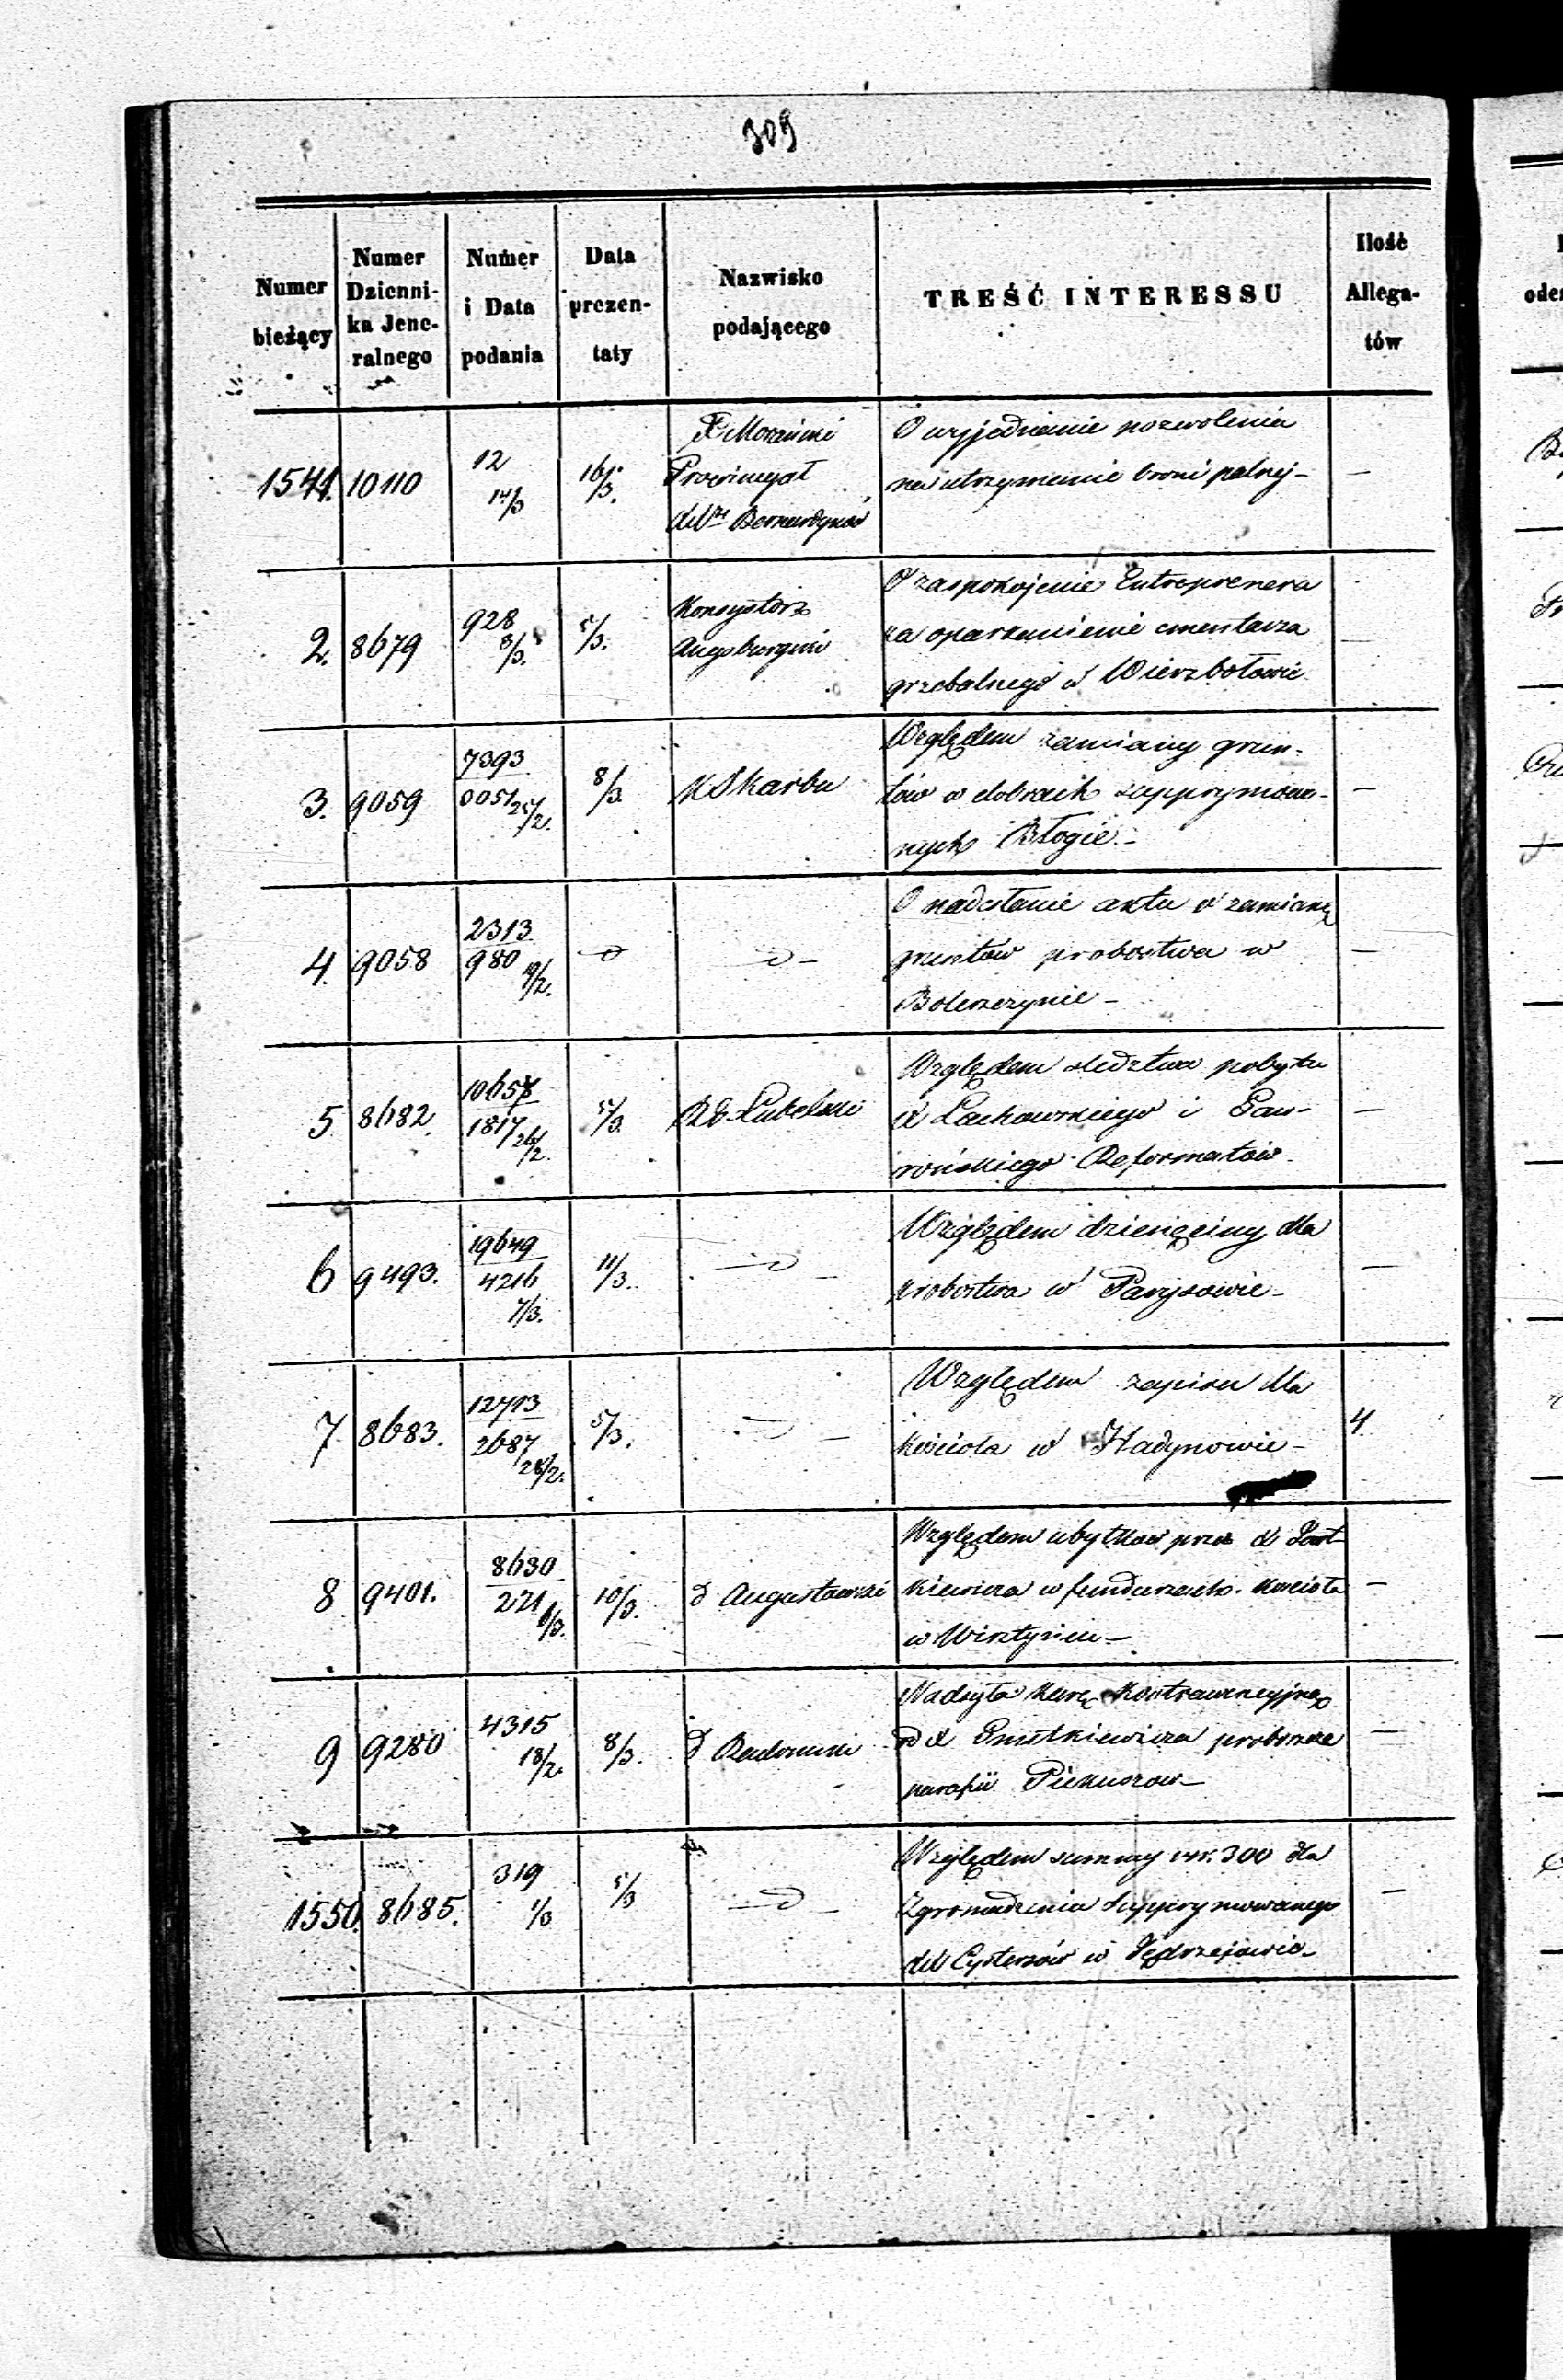 309
Numer bieżący | Numer Dzienni- ka Jene- ralnego | Numer i Data podania | Data prezen- taty | Nazwisko podającego | TREŚĆ INTERESSU | Ilość Allega- tów
1541. | 10110 | 12 14/3 | 16/3. | X Prowincyał XXrów Bernardynów | O wyjednanie pozwolenia
na utrzymanie broni palnej – | —
2. | 8679 | 928 8/3. | 5/3. | Konsystorz Augsburgski | O zaspokojenie Entreprenera
za oparkanienie cmentarza
grzebalnego w Wierzbołowie | —
3. | 9059 | 7393 25/2. | 8/3. | K Skarbu | Względem zamiany grun-
tów w dobrach supprymowa-
nych Błogie – | —
4. | 9058 | 2313 980 19/2. | d | d – | O nadesłanie aktu o zamianę
gruntów probostwa w
– | —
5 | 8682. | 10658 1817 26/2. | 5/3. | R G Lubelski | Względem śledztwa pobytu
X Lachowskiego i Paw-
Reformatów – | —
6 | 9493. | 19649 4216 7/3. | 11/3. | d – | Względem dziesięciny dla
probostwa w Parysowie – | —
7 | 8683. | 12713 2687 28/2. | 5/3. | d – | Względem zapisu dla
kościoła w Hadynowie – | 4.
8 | 9401. | 8630 221 6/3. | 10/3. | d Augustowski | Względem ubytków przez X
w funduszach kościoła
w Wisztyńcu – | —
9 | 9280 | 4315 18/2. | 8/3. | d Radomski | Nadsyła karę kontrawencyjną
od X proboszcza
parafii Piekuszow – | —
1550. | 8685. | 319 1/3 | 5/3 | d – | Względem summy rsr. 300 dla
Zgromadzenia supprymowanego
XX Cystersów w Jędrzejowie – | —